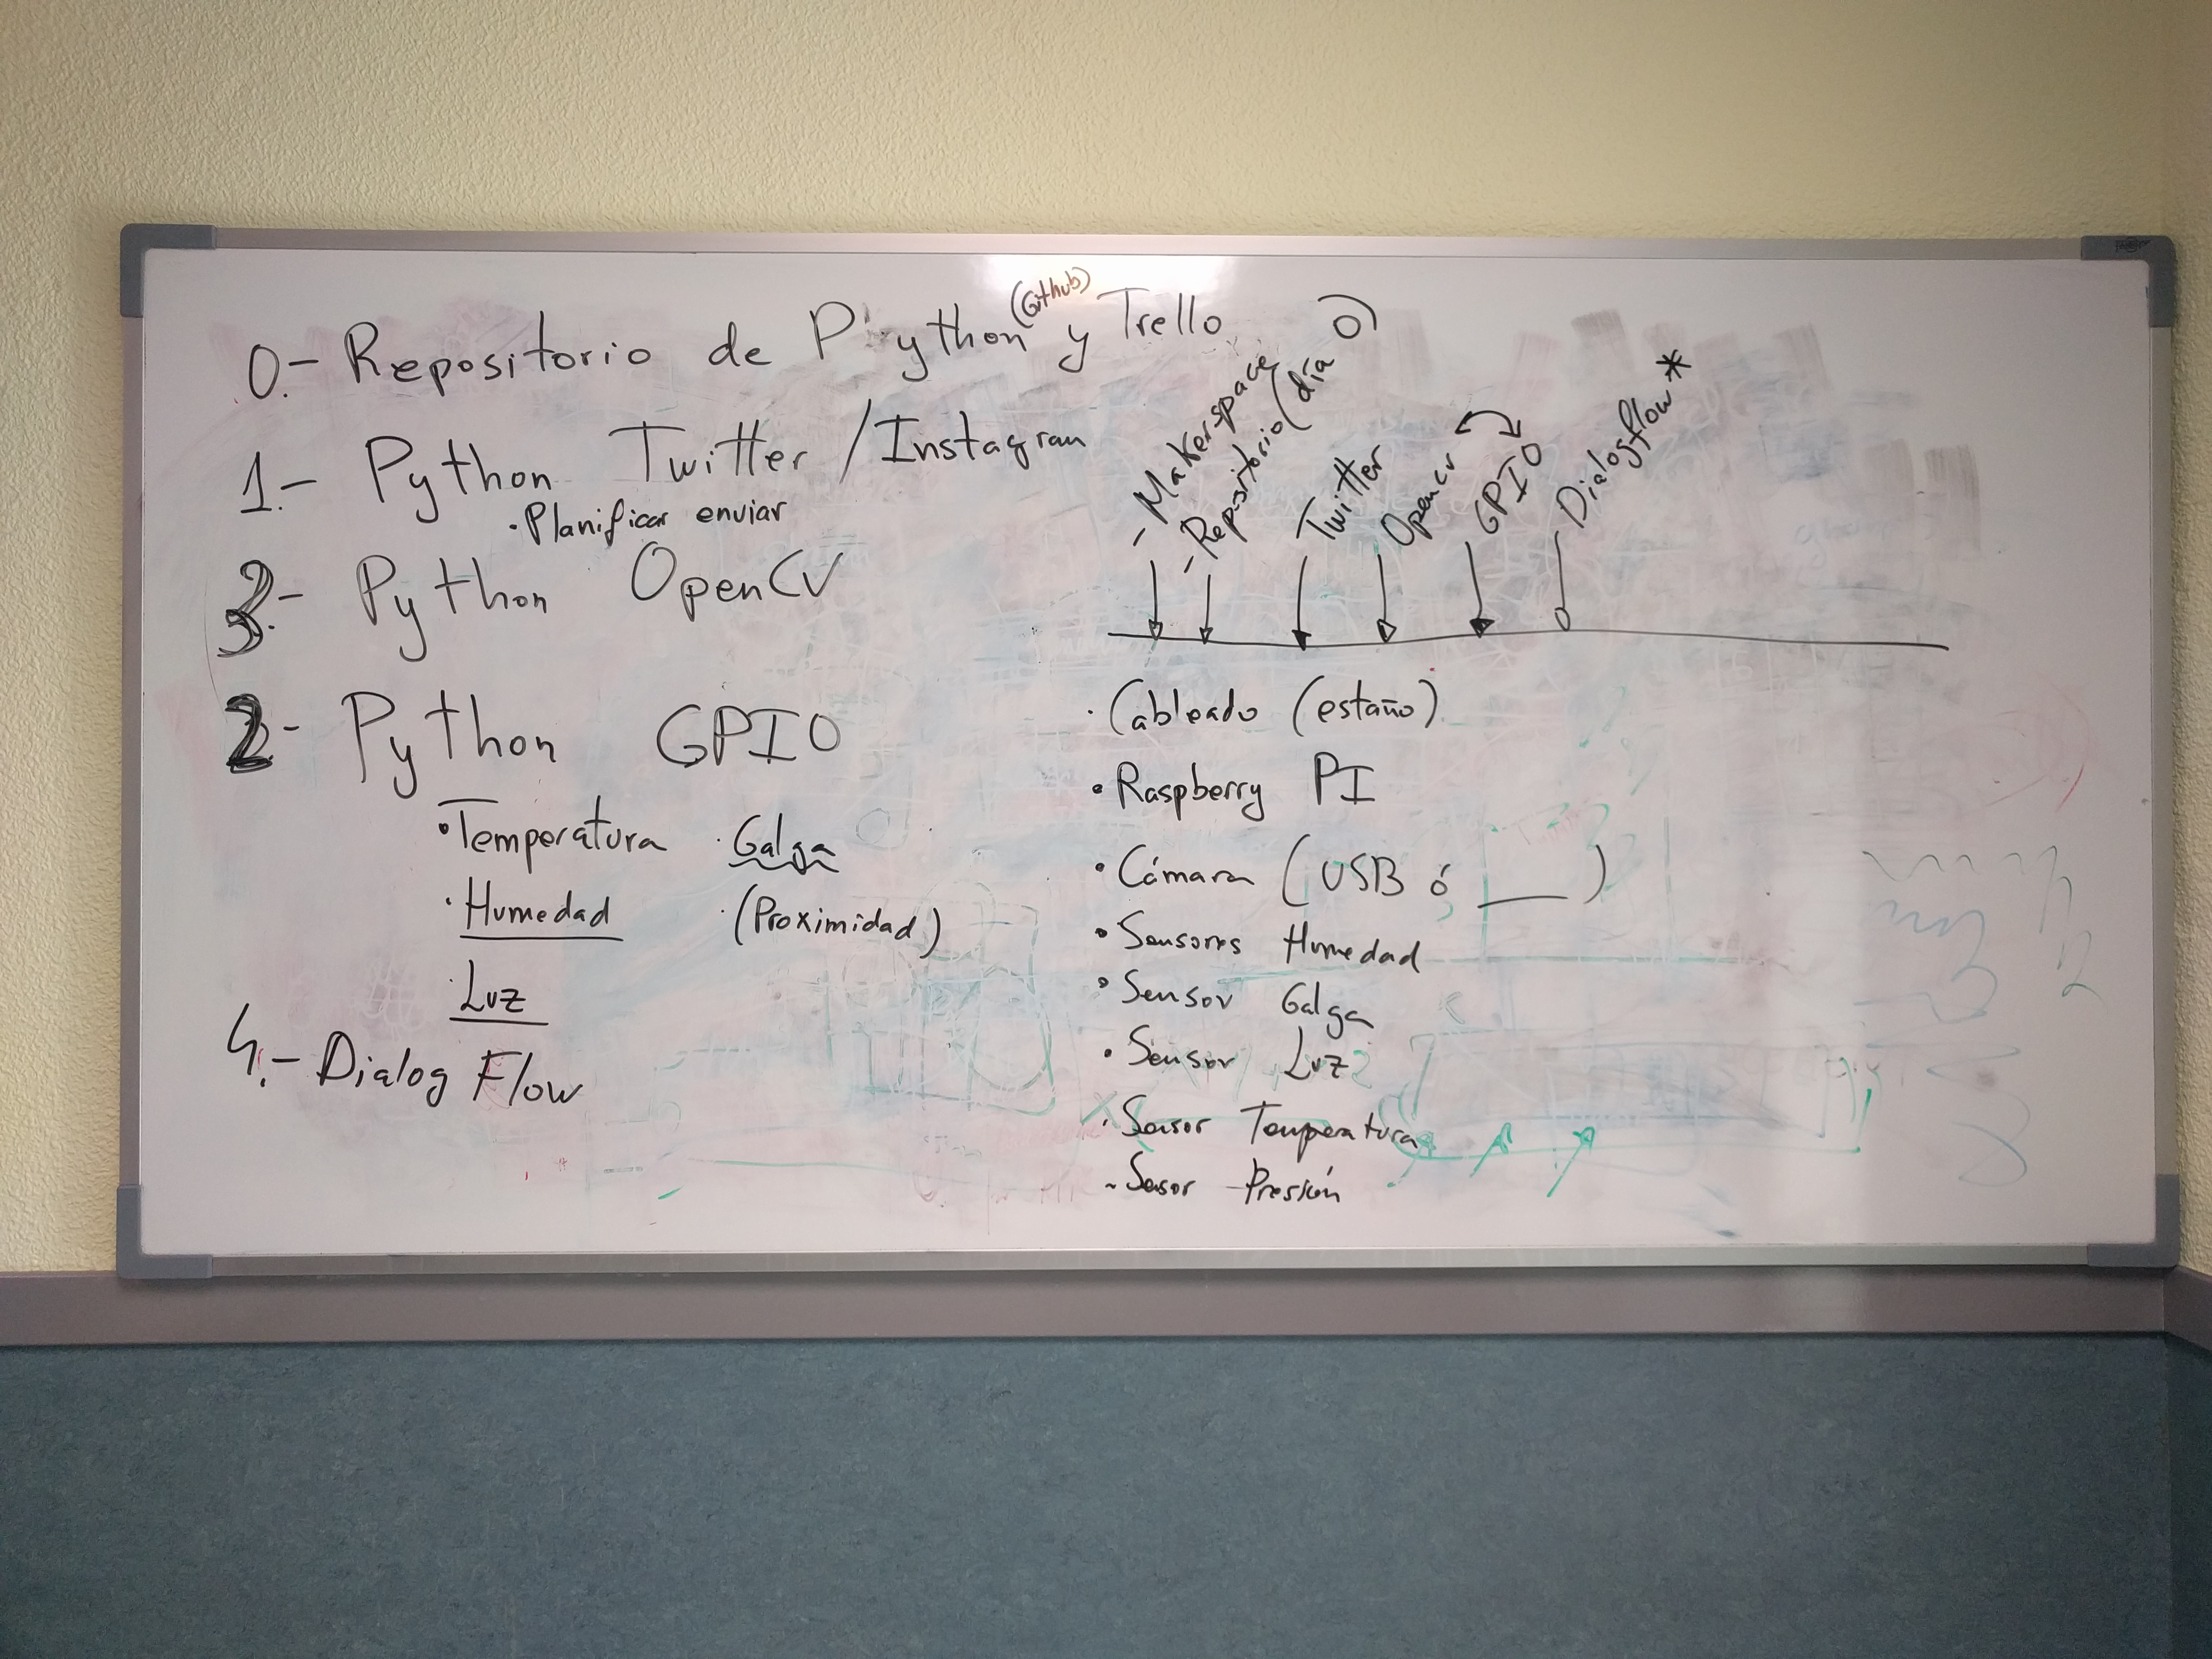 0.- Repositorio de Pyython (Github) y Trello
1.- Python Twitter /Instagram
·Planificar enviar
3.- Python OpenCV
2- Python GPIO
·Temperatura ·Galga
·Humedad ·(Proximidad)
·Luz
4.- Dialog Flow
- Makerspace
- Repositorio (día 0)
Twitter
Opencv
GPIO
Dialogflow *
·Cableado (estaño)
·Raspberry PI
·Cámara (USB ó ___)
·Sensores Humedad
·Sensor Galga
·Sensor Luz
·Sensor Temperatura
- Sesor Presión